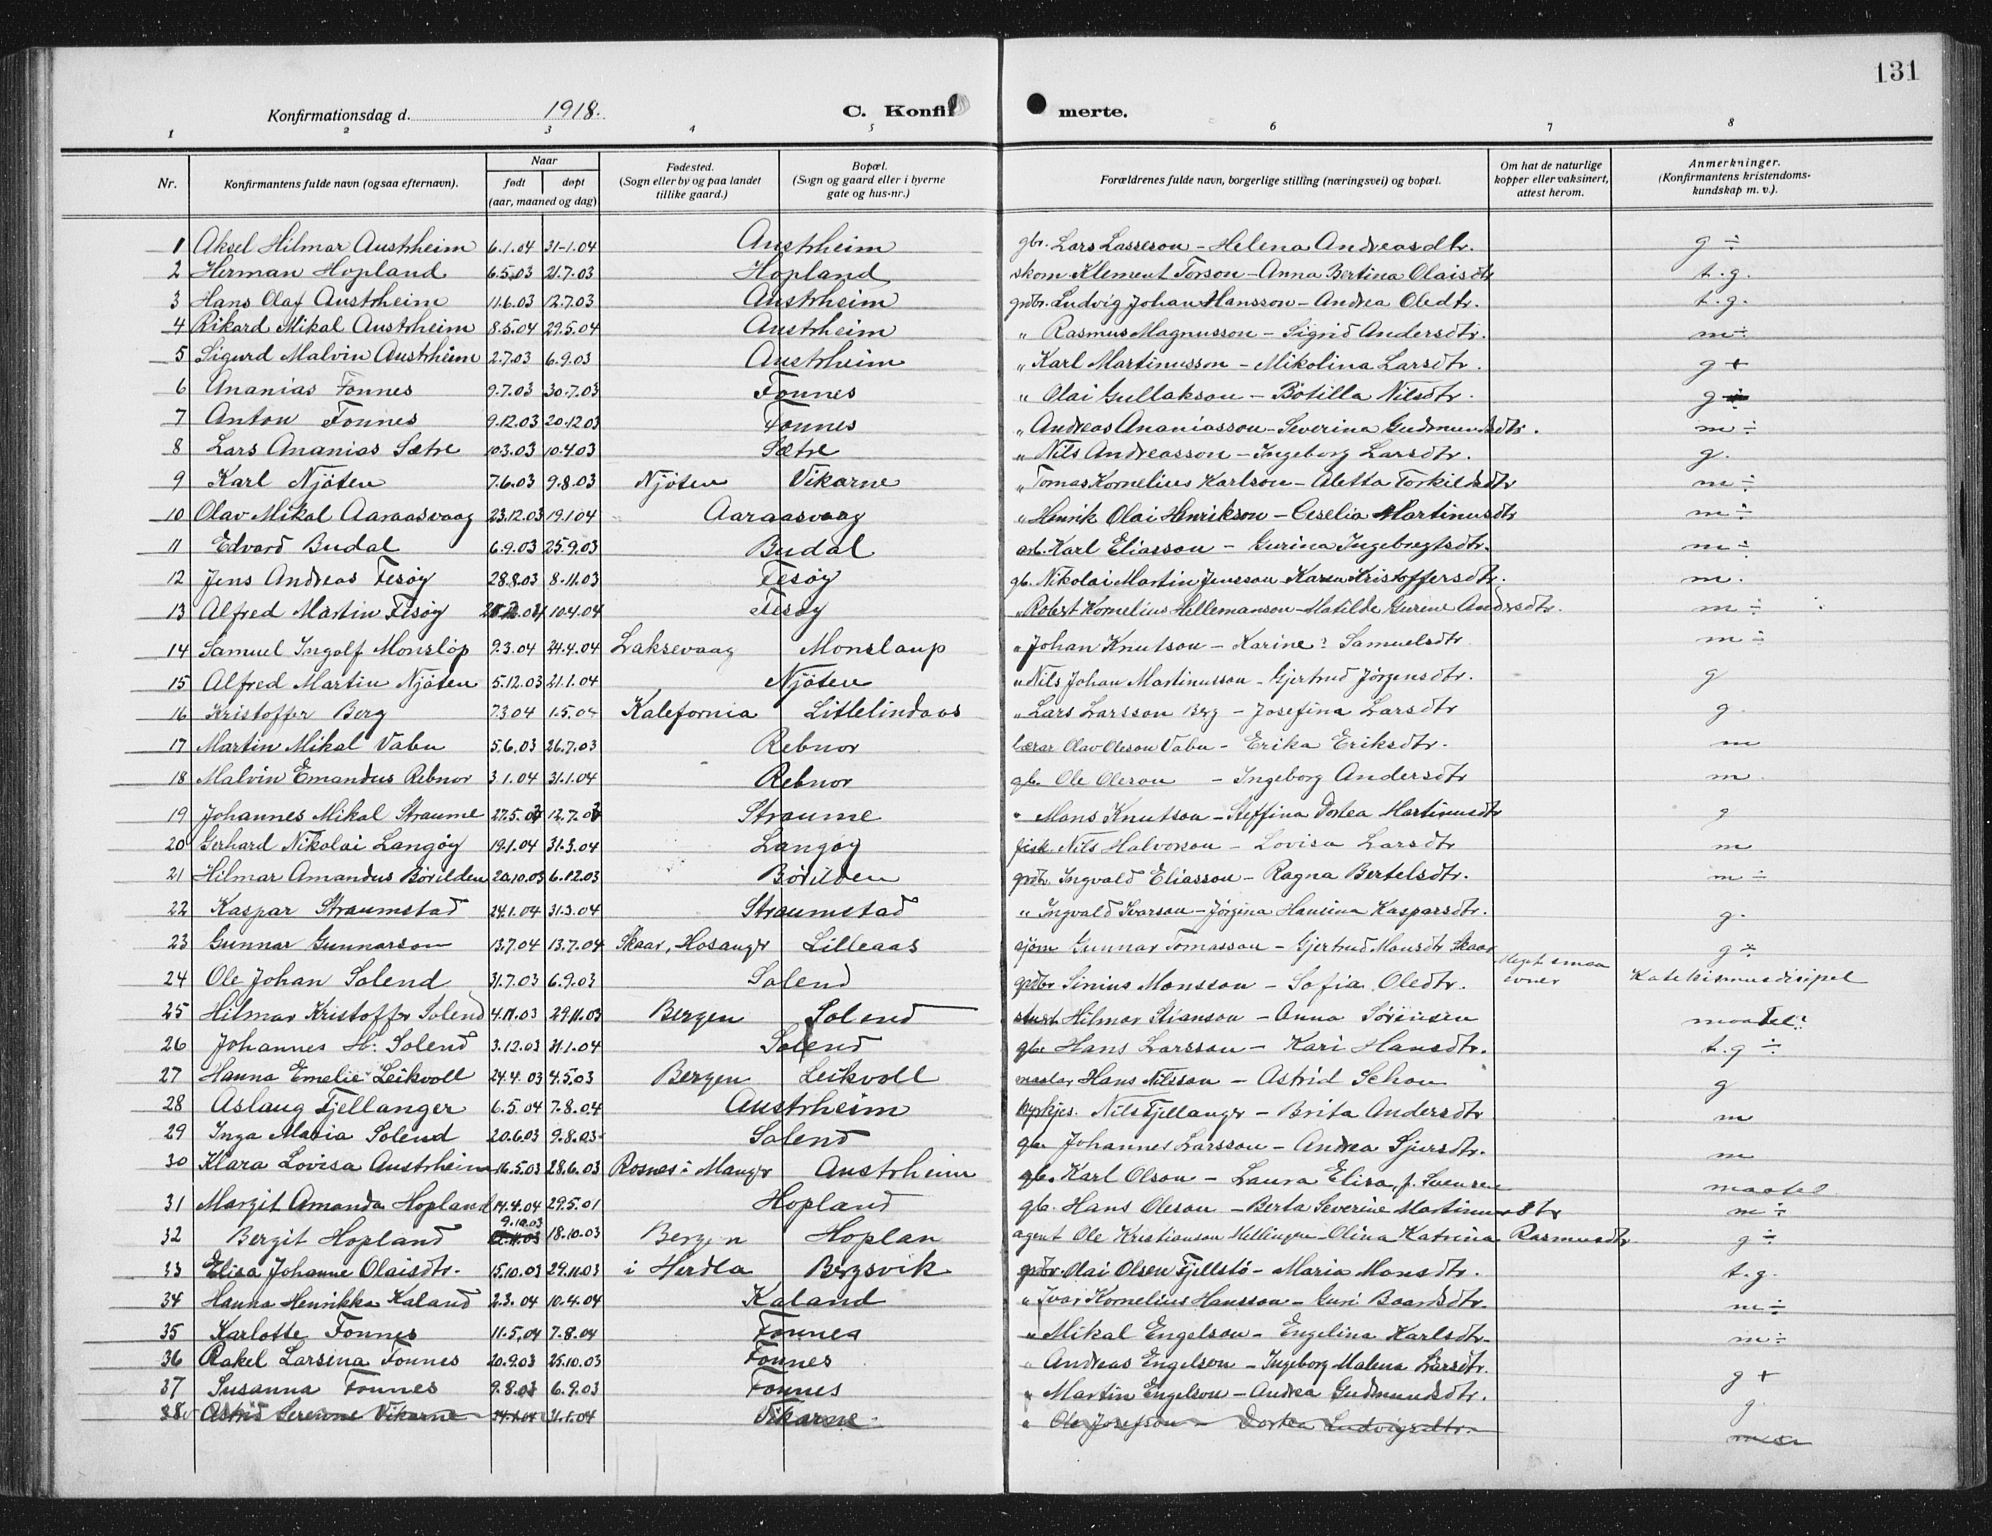 131
Konfirmationsdag d. 1918. C. Konfir merte.
1 2 3 4 5 6 7 8
Nr. Konfirmantens fulde navn (ogsaa efternavn). Naar født døpt (aar, maaned og dag) Fødested. (Sogn eller by og paa landet tillike gaard.) Bopæl. (Sogn og gaard eller i byerne gate og hus-nr.) Forældrenes fulde navn, borgerlige stilling (næringsvei) og bopæl. Om hat de naturlige kopper eller vaksinert, attest herom. Anmerkninger. (Konfirmantens kristendomskundskap m. v.).
1 Aksel Hilmar Austrheim 6.1.04 31-1.04 Austrheim gbr. Lars Lasseson - Helena Andreasdtr. g ÷
2 Herman Hopland 6.5.03 21.7.03 Hopland skom. Klement Torson - Anna Bertina Olaisdtr t.g.
3 Hans Olaf Austrheim 11.6.03 12.7.03 Austrheim grdbr. Ludvig Johan Hansson - Andrea Oledtr. t.g.
4 Rikard Mikal Austrheim 8.5.04 29.5.04 Austrheim " Rasmus Magnusson - Sigrid Andersdtr. m÷
5 Sigurd Malvin Austrheim 2.7.03 6.9.03 Austrheim " Karl Martinusson - Mikolina Larsdtr. g +
6 Ananias Fonnes 9.7.03 30.7.03 Fonnes " Olai Gullakson - Botilla Nilsdtr. g
7 Anton Fonnes 9.12.03 20.12.03 Fonnes " Andreas Ananiasson - Severina Gudmundsdtr. m ÷
8 Lars Ananias Sætre 10.3.03 10.4.03 Sætre " Nils Andreasson - Ingeborg Larsdtr. g.
9 Karl Njøten 7.6.03 9.8.03 Njøten Vikarne " Tomas Kornelius Karlson - Aletta Torkildsdtr m ÷
10 Olav Mikal Aaraasvaag 23.12.03 19.1.04 Aaraasvaag " Henrik Olai Henrikson - Ceselia Martinusdtr m ÷
11 Edvard Budal 6.9.03 25.9.03 Budal arb. Karl Eliasson - Gurina Ingebregtsdtr. m ÷
12 Jens Andreas Fesøy 28.8.03 8.11.03 Fesøy gb. Nikolai Martin Jensson - Karen Kristoffersdtr. m.
13 Alfred Martin Fesøy .04 10.4.04 Fesøy " Robert Kornelius Hellemanson - Matilde Gurine Andersdtr. m ÷
14 Samuel Ingolf Monsløp 9.3.04 24.4.04 Laksevaag Monslaup " Johan Knutson - Karine? Samuelsdtr m ÷
15 Alfred Martin Njøten 5.12.03 21.1.04 Njøten " Nils Johan Martinusson - Gjertrud Jørgensdtr. g
16 Kristoffer Berg 7.3.04 1.5.04 Kalefornia Litlelindaas " Lars Larsson Berg - Josefina Larsdtr g.
17 Martin Mikal Vabu 5.6.03 26.7.03 Rebnor lærar Olav Oleson Vabu - Erika Eriksdtr. m
18 Malvin Emandus Rebnor 3.1.04 31.1.04 Rebnor gb. Ole Oleson - Ingeborg Andersdtr m
19 Johannes Mikal Straume 27.5.03 12.7.03 Straume " Mons Knutson - Steffina Dortea Martinusdtr g
20 Gerhard Nikolai Langøy 19.1.04 31.3.04 Langøy fisk. Nils Halvorson - Lovisa Larsdtr m
21 Hilmar Amandus Børilden 20.10.03 6.12.03 Børilden grdbr. Ingvald Eliasson - Ragna Bertelsdtr. m ÷
22 Kaspar Straumstad 24.1.04 31.3.04 Straumstad " Ingvald Ivarson - Jørgina Hansina Kasparsdtr. g.
23 Gunnar Gunnarson 13.7.04 13.7.04 Skaar, Hosanger Lilleaas sjøm Gunnar Tomasson - Gjertrud Monsdtr Skaar g÷
24 Ole Johan Solend 31.7.03 6.9.03 Solend grdbr Sinius Monsson - Sofia Oledtr. Meget smaa evner Katekismusdisipel
25 Hilmar Kristoffer Solend 4.11.03 29.11.03 Bergen Solend Hilmar Stianson - Anna Sørensen maatel.
26 Johannes H. Solend 3.12.03 31.1.04 Solend gbr Hans Larsson - Kari Hansdtr. t.g ÷
27 Hanna Emelie Leikvoll 24.4.03 4.5.03 Bergen Leikvoll maalar Hans Nilsson - Astrid Schou g
28 Aslaug Fjellanger 6.5.04 7.8.04 Austrheim kyrkjes. Nils Fjellanger - Brita Andersdtr m
29 Inga Maria Solend 20.6.03 9.8.03 Solend gb. Johannes Larsson - Andrea Sjursdtr. m
30 Klara Lovisa Austrheim 16.5.03 28.6.03 Rosnes i Manger Austrheim gb. Karl Olson - Laura Elisa, f. Svensen maatel
31 Margit Amanda Hopland 14.4.04 29.5.01 Hopland gb. Hans Oleson - Berta Severine Martinusdtr m ÷
32 Bergit Hopland 9.10.03 18.10.03 Bergen Hoplan agent Ole Kristianson Mellingen - Olina Katrina Rasmusdtr g ÷
33 Elisa Johanne Olaisdtr. 15.10.03 29.11.03 i Herdla Bergsvik grdbr. Olai Olsen Fjellstø - Maria Monsdtr. t.g.
34 Hanna Henrikka Kaland 2.3.04 10.4.04 Kaland " Ivar Kornelius Hansson - Guri Baardsdtr. m ÷
35 Karlotte Fonnes 11.5.04 7.8.04 Fonnes " Mikal Engelson - Engelina Karlsdtr. m ÷
36 Rakel Larsena Fonnes 20.9.03 25.10.03 Fonnes " Andreas Engelson - Ingeborg Malena Larsdtr. g +
37 Susanna Fonnes 9.8.03 6.9.03 Fonnes " Martin Engelson - Andrea Gudmundsdtr. g.
38 Astrid Vikarne 31.1.04 Vikarne " Ole Josefson - Dortea Ludvigsdtr.